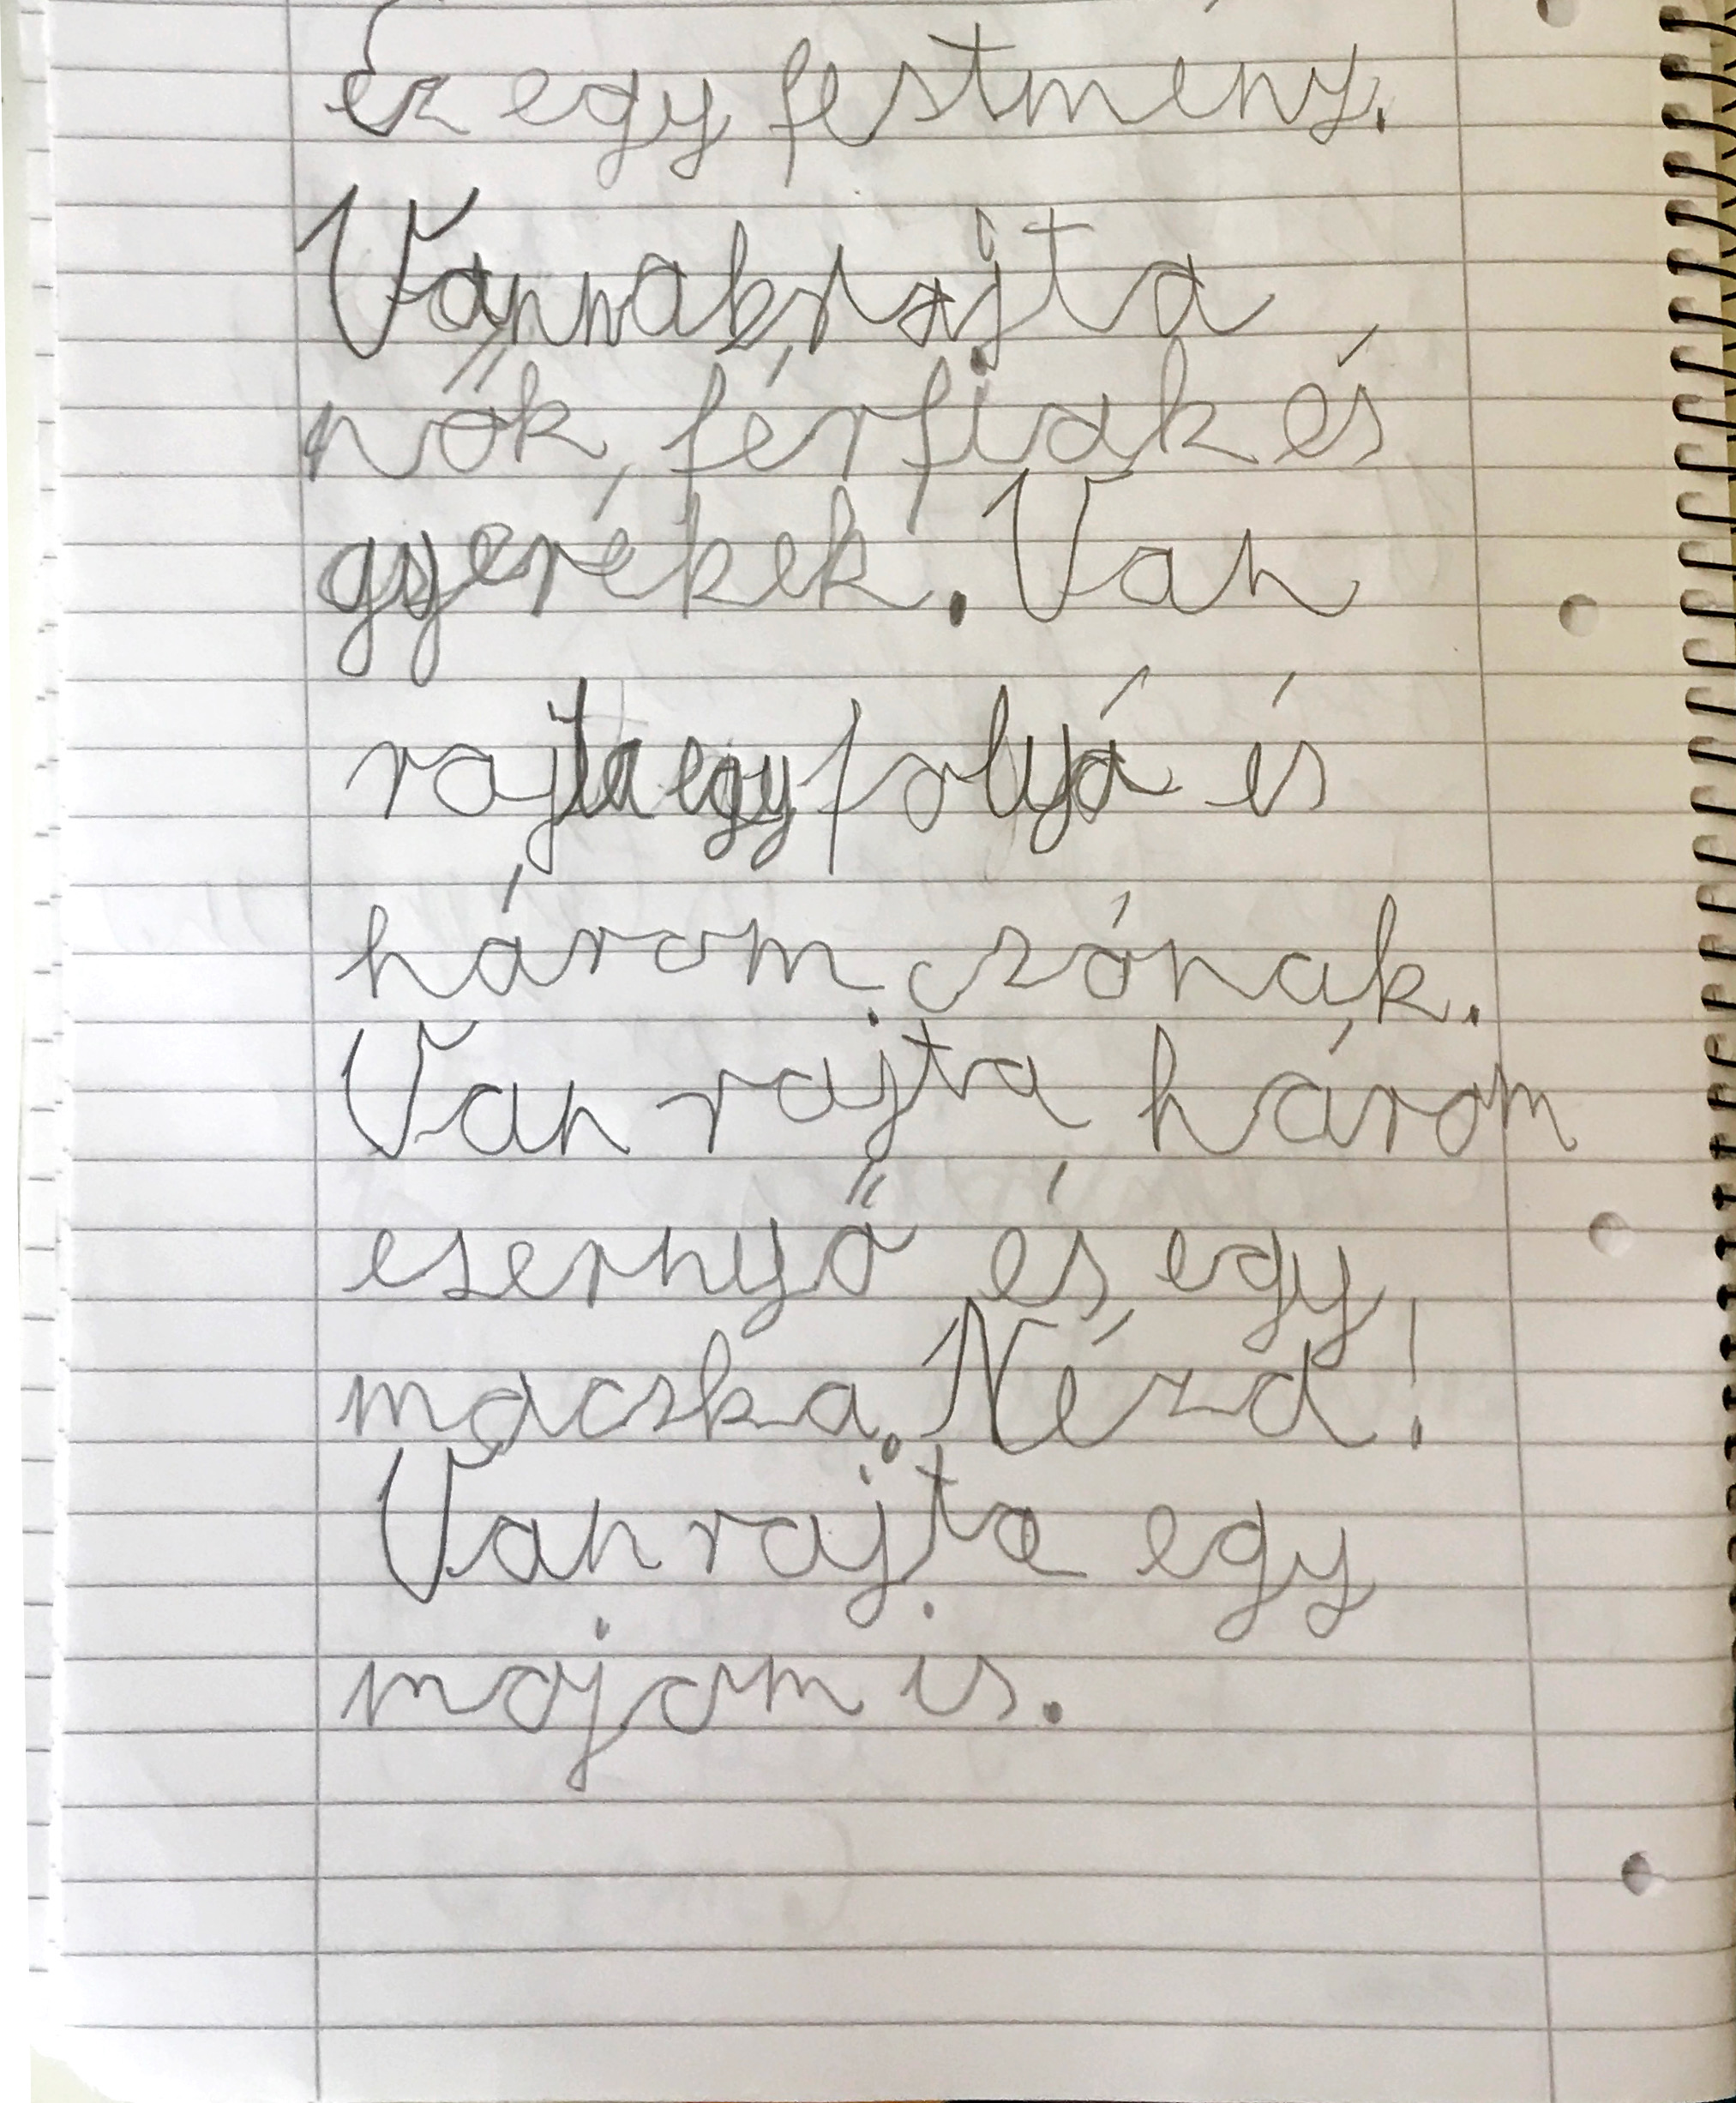 Ez egy festmény.
Vannak rajta
nők, férfiak és
gyerékek. Van
rajta egy folyó és
három csónak.
Van rajta három
esernyő és egy
macska. Nézd!
Van rajta egy
majom is.